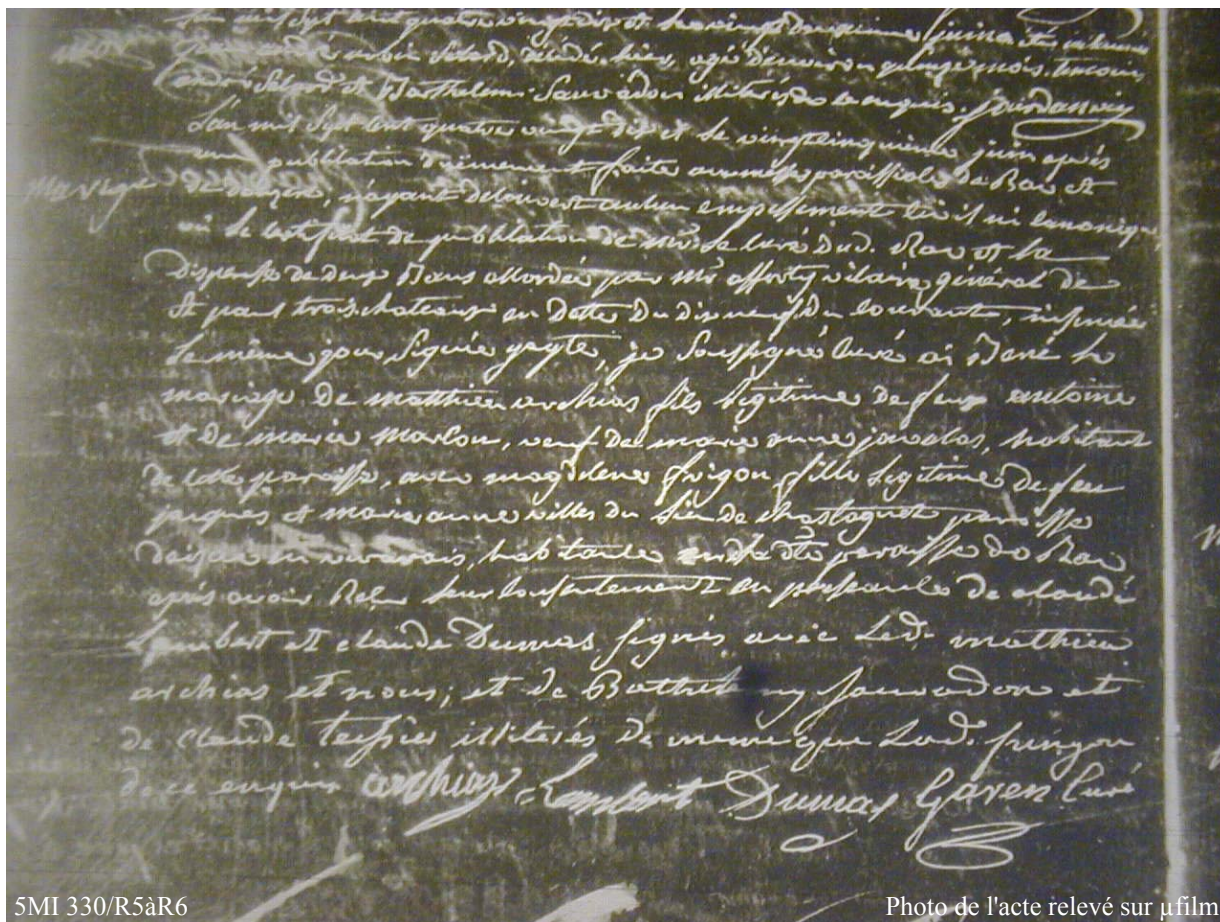 L'an mil sept cent quatre vingt dix et le vingt deuxieme juin a été inhumé
décédé hier, agé d'environ quinze mois. temoins
et Barthelemi Sauvadon illiterés de ce enquis. jourdan
L'an mil sept cent quatre vingt dix et le vingtcinquième juin après
une publication duëment faite aux messes paroissiales de Bar et
mariage de, n'ayant decouvert aucun empechement civil ni canonique,
vu le certificat de publication de mr. le curé dud. Bar et la
dispense de deux Bans accordée par mr afforty vicaire général de
st paul trois chateaux en datte du dix neuf du courant, insinuée
le même jour, signée payte, je soussigné curé ai Beni le
mariage de matthieu archias fils légitime de feux antoine
et de marie marcon, veuf de marie anne javelas, habitant
de cette paroisse, avec magdelene frigon fille legitime de feu
jaques et marie anne villes du lieu de chastagnet paroisse
en vivarais, habitante en lad. paroisse de Bar
après avoir Reçu leur consentement en presence de claude
Lambert et claude Dumas signés avec Led. mathieu
archias et nous; et de Barthelemy sauvadon et
de claude teissier illiterés de meme que Lad. fringon
de ce enquis archias Lambert Dumas Garen Curé
5MI 330/R5àR6
Photo de l'acte relevé sur µfilm